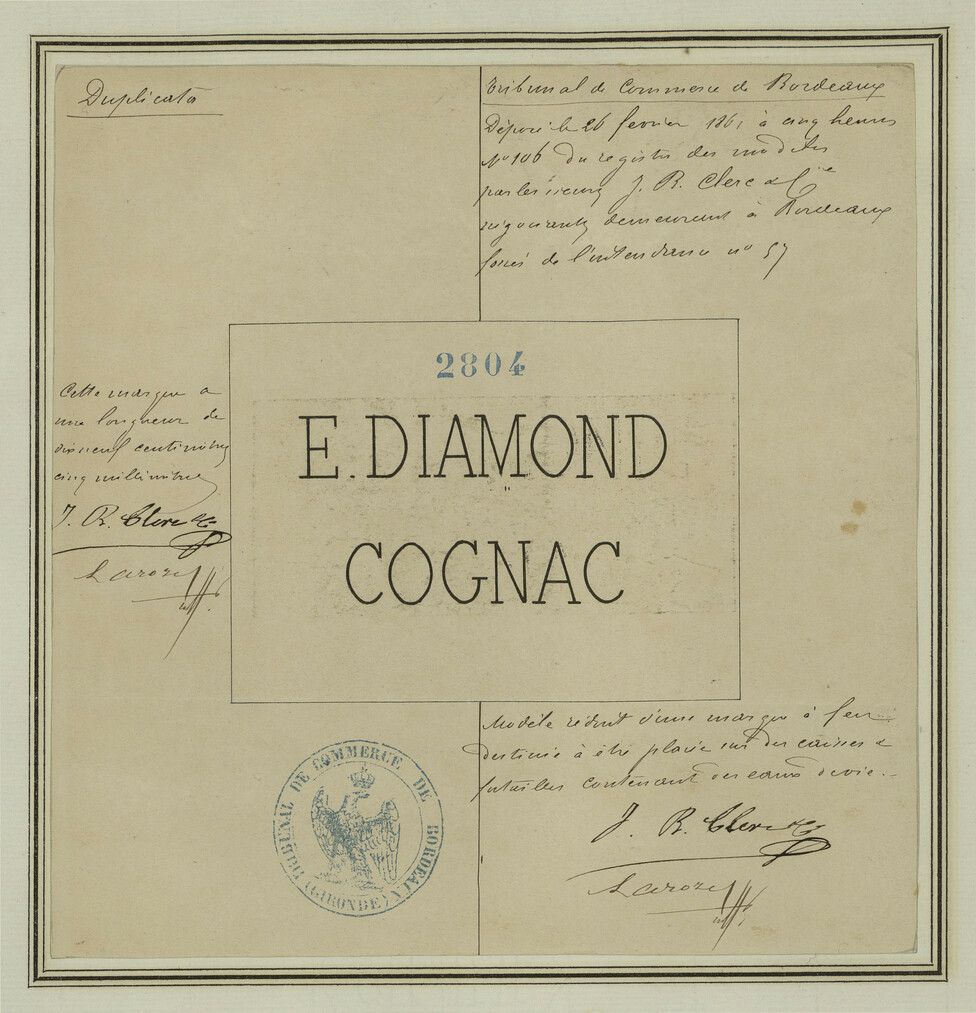 Duplicata
Tribunal de Commerce de Bordeaux
Déposé le 26 fevrier 1861 à cinq heures
N° 106 du registre des modèles
par les sieurs J. R. Clerc & Cie
négociants demeurant à Bordeaux
fossés de l'intendance n° 57
2804
E. DIAMOND
COGNAC
Cette marque a
une longueur de
dixneuf centimètres
cinq millimètres
J. R. Clerc & Cie
Laroze
Modèle réduit d'une marque à feu
destinée à être placée sur des caisses &
futailles contenant des eaux de vie.
J. R. Clerc & Cie
Laroze
TRIBUNAL DE COMMERCE DE BORDEAUX
(GIRONDE)